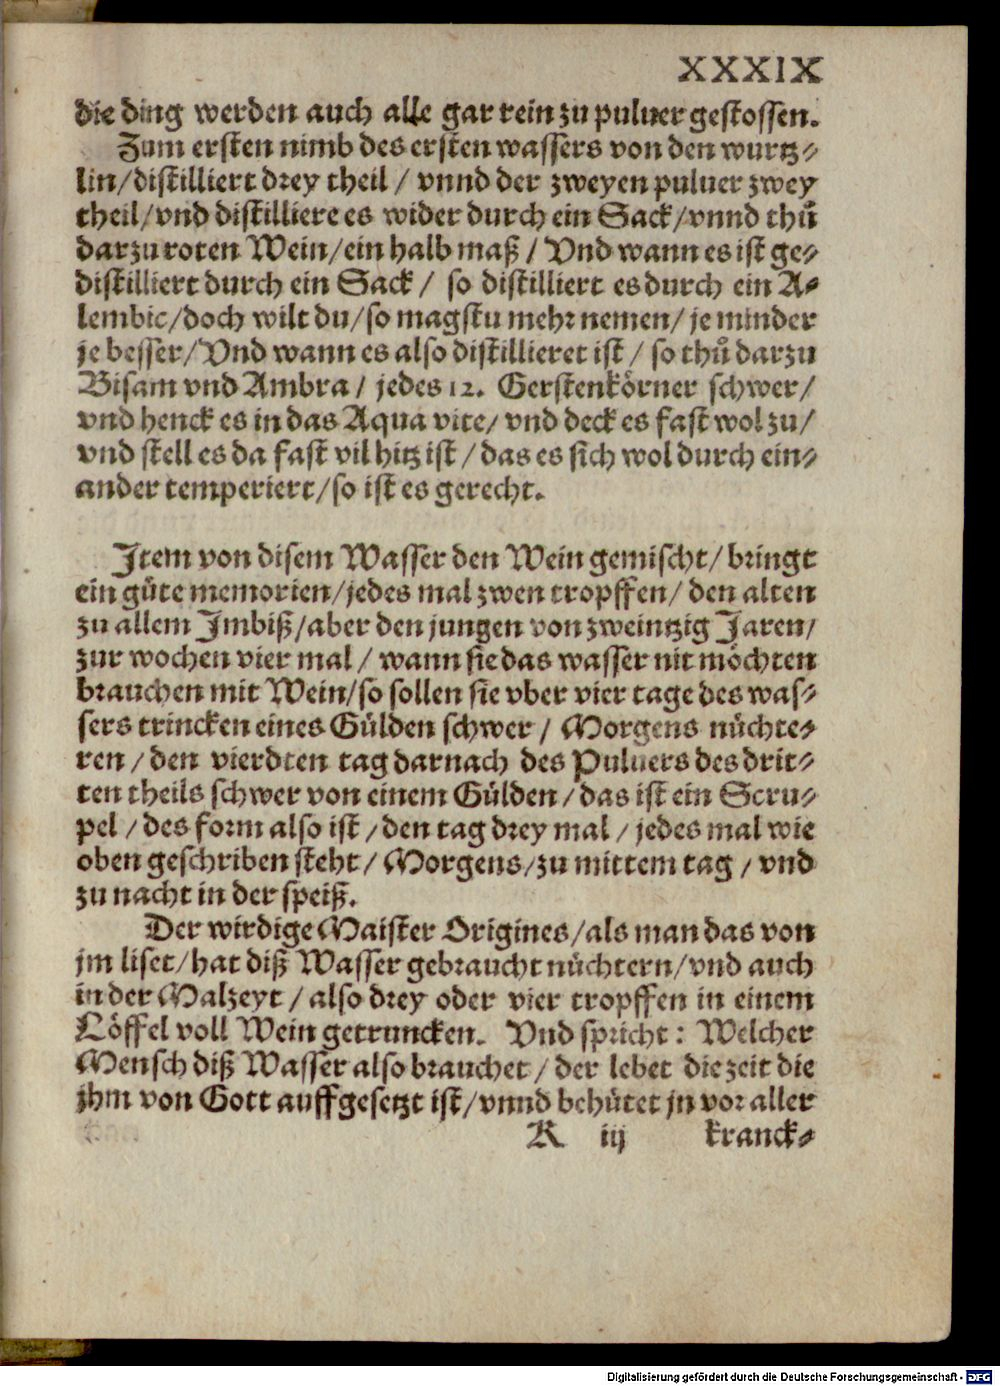 XXXIX
die ding werden auch alle gar rein zu puluer gestossen.
Zum ersten nimb des ersten wassers von den wurtz⸗
lin/distilliert drey theil / vnnd der zweyen puluer zwey
theil/vnd distilliere es wider durch ein Sack/vnnd thuͦ
darzu roten Wein/ein halb maß / Vnd wann es ist ge⸗
distilliert durch ein Sack / so distilliert es durch ein A⸗
lembic/doch wilt du/so magstu mehr nemen/ je minder
je besser/Vnd wann es also distillieret ist / so thuͦ darzu
Bisam vnd Ambra / jedes 12. Gerstenkörner schwer/
vnd henck es in das Aqua vite/ vnd deck es fast wol zu/
vnd stell es da fast vil hitz ist / das es sich wol durch ein⸗
ander temperiert/so ist es gerecht.
Item von disem Wasser den Wein gemischt/ bringt
ein güte memorien/jedes mal zwen tropffen/ den alten
zu allem Imbiß/aber den jungen von zweintzig Jaren/
zur wochen vier mal / wann sie das wasser nit möchten
brauchen mit Wein/so sollen sie vber vier tage des was⸗
sers trincken eines Gülden schwer / Morgens nüchte⸗
ren / den vierdten tag darnach des Puluers des drit⸗
ten theils schwer von einem Gülden / das ist ein Scru⸗
pel / des form also ist / den tag drey mal / jedes mal wie
oben geschriben steht / Morgens/zu mittem tag / vnd
zu nacht in der speiß.
Der wirdige Maister Origines/als man das von
jm liset/hat diß Wasser gebraucht nüchtern/vnd auch
in der Malzeyt / also drey oder vier tropffen in einem
Löffel voll Wein getruncken. Vnd spricht: Welcher
Mensch diß Wasser also brauchet / der lebet die zeit die
jhm von Gott auffgesetzt ist/vnnd behütet jn vor aller
K iij kranck⸗
Digitalisierung gefördert durch die Deutsche Forschungsgemeinschaft - DFG